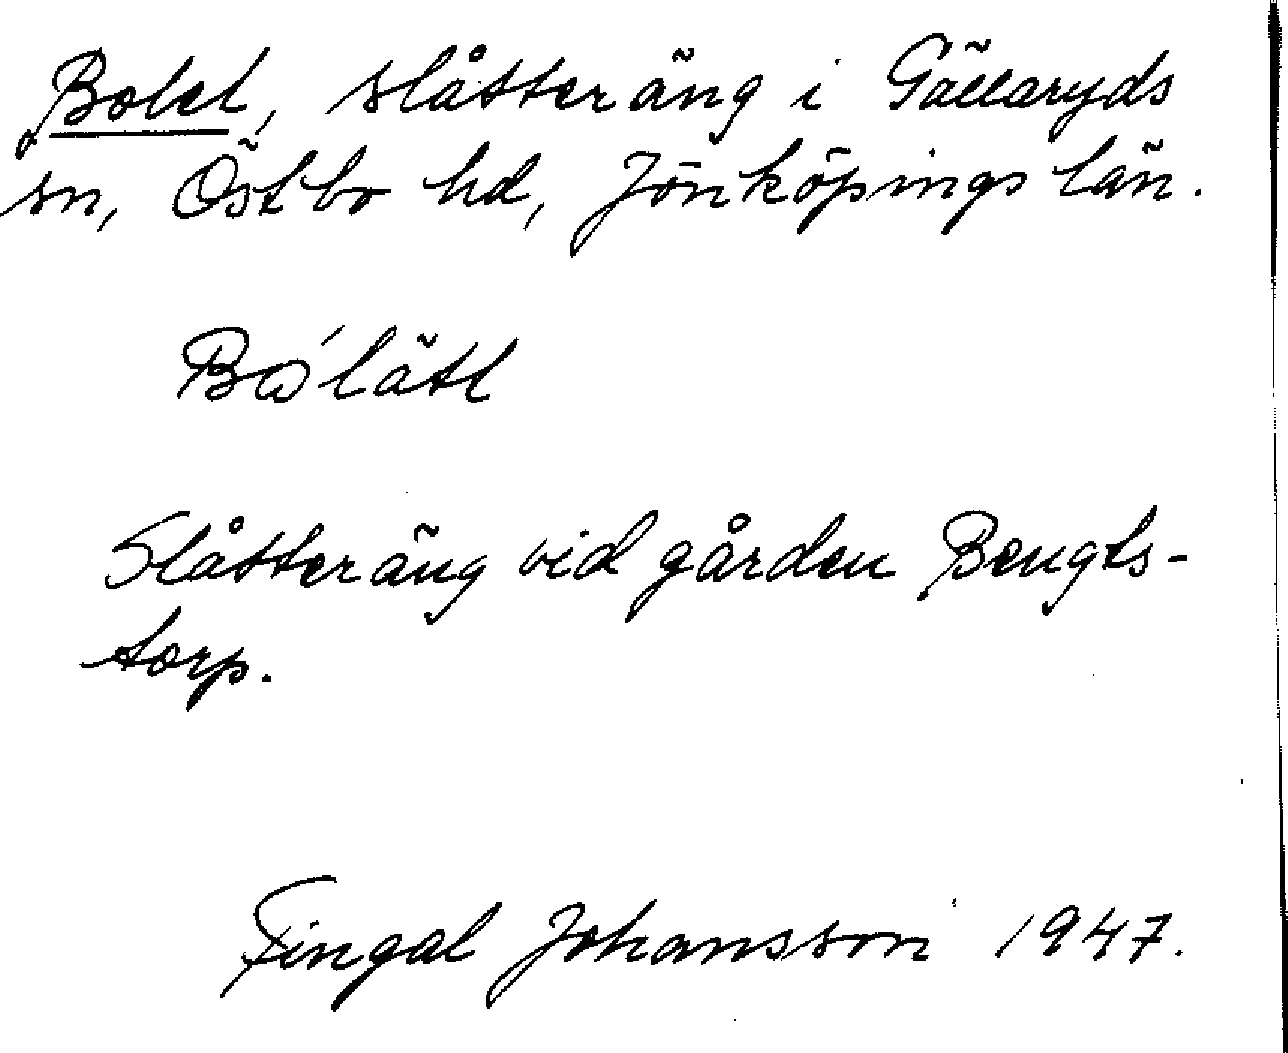 Bolet, slåtteräng i Gällaryds
sn, Östbo hd, Jönköpings län.
Slåtteräng vid gården Bengts-
torp.
Fingal Johansson 1947.